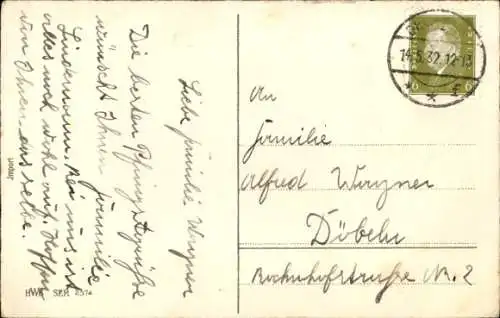 Liebe Familie Wagner
Die besten Pfingstgrüße
wünscht Ihnen Familie
Lindemann. Bei uns ist
alles noch wohl auf. Hoffen
von Ihnen das selbe.
An
Familie
Alfred Wagner
Döbeln
Bahnhofstraße Nr. 2
14.5.32.12-13
6
6
HWK SER 237a